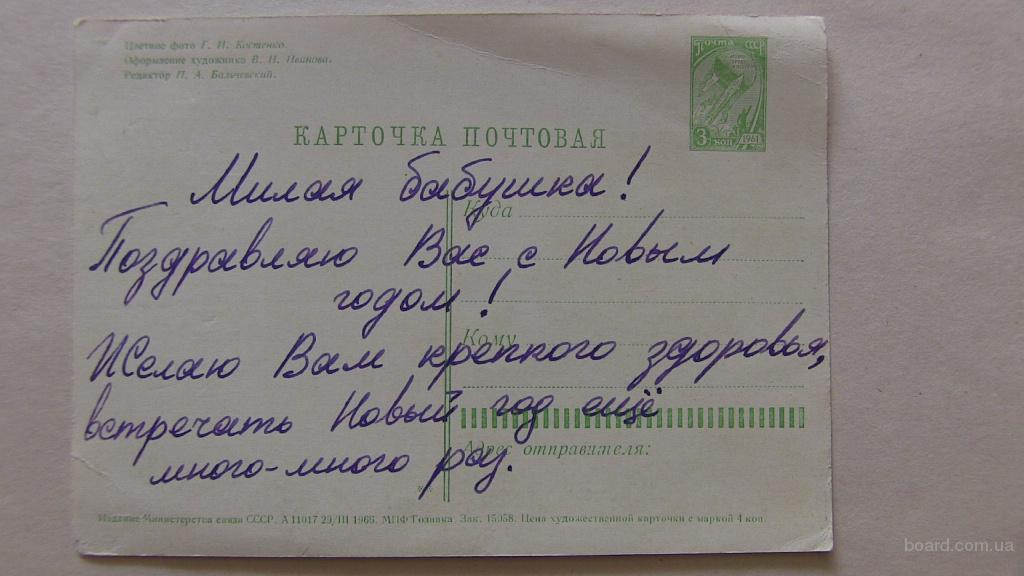 Цветное фото Г. И. Костенко.
Оформление художника В. И. Иванова.
Редактор П. А. Бальчевский.
Почта СССР
3 коп 1961
КАРТОЧКА ПОЧТОВАЯ
Милая бабушка!
Куда
Поздравляю Вас с Новым
годом!
Кому
Желаю Вам крепкого здоровья,
встречать Новый год ещё
Адрес отправителя:
много-много раз.
Издание Министерства связи СССР. А 11017 29/III 1966. МПФ Гознака. Зак. 15958. Цена художественной карточки с маркой 4 коп.
board.com.ua